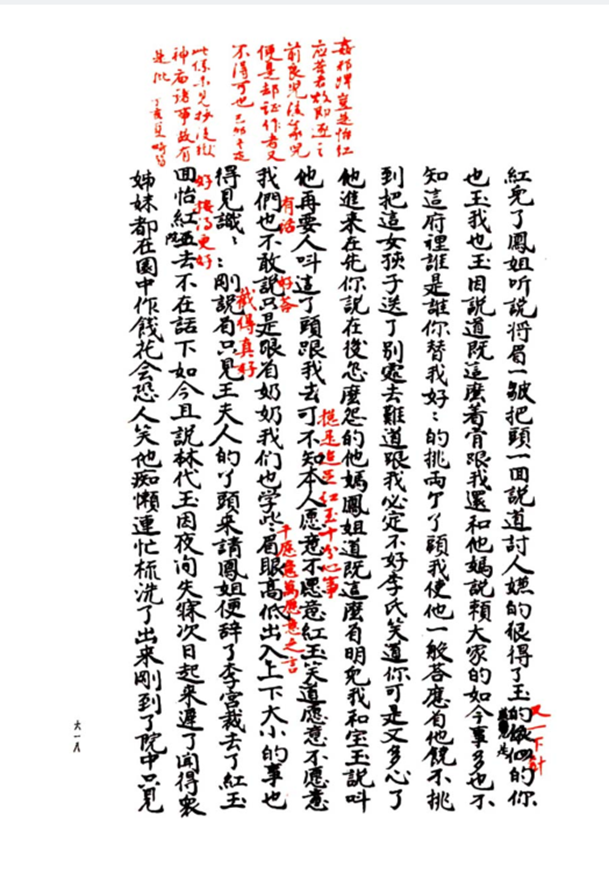 姦邪婢豈是怡紅
應荅者故即逐之
前良兒後篆兒
便是却証作者又
不得可也 己卯冬夜
此係未見抄沒獄
神廟諸事故有
是批 丁亥夏畸笏
紅兒了鳳姐听説將眉一皺把頭一回説道討人嫌的狠得了玉的似的你
又一下針
也玉我也玉因説道既這麽着肯跟我還和他媽説賴大家的如今事多也不
知這府裡誰是誰你替我好:的挑兩个丫頭我使他一般荅應着他饒不挑
到把這女孩子送了別處去難道跟我必定不好李氏笑道你可是又多心了
他進来在先你説在後怎麽怨的他媽鳳姐道既這麽着明兒我和宝玉説呌
總是追写紅玉十分心事
他再要人呌這丫頭跟我去可不知本人愿意不愿意紅玉笑道愿意不愿意
有話
好荅
千愿意萬愿意之言
我們也不敢説只是跟着奶奶我們也学些眉眼高低出入上下大小的事也
截得真好
得見識::剛説着只見王夫人的丫頭来請鳳姐便辞了李宮裁去了紅玉
好接得更好
回怡紅院去不在話下如今且説林代玉因夜间失寐次日起来遲了闻得衆
姊妹都在園中作餞花会恐人笑他痴懶連忙梳洗了出来剛到了院中只見
六一八